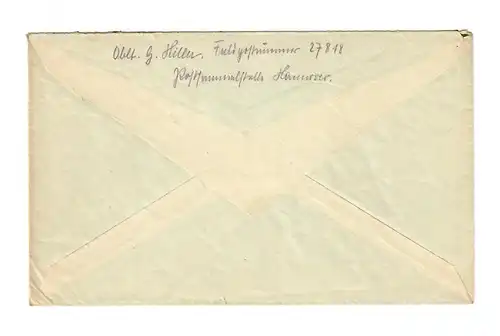 Oblt. G. Hiller. Feldpostnummer 27818
Postsammelstelle Hannover.